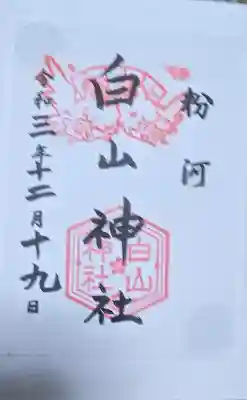 粉河
白山神社
令和三年十二月十九日
白山
神社